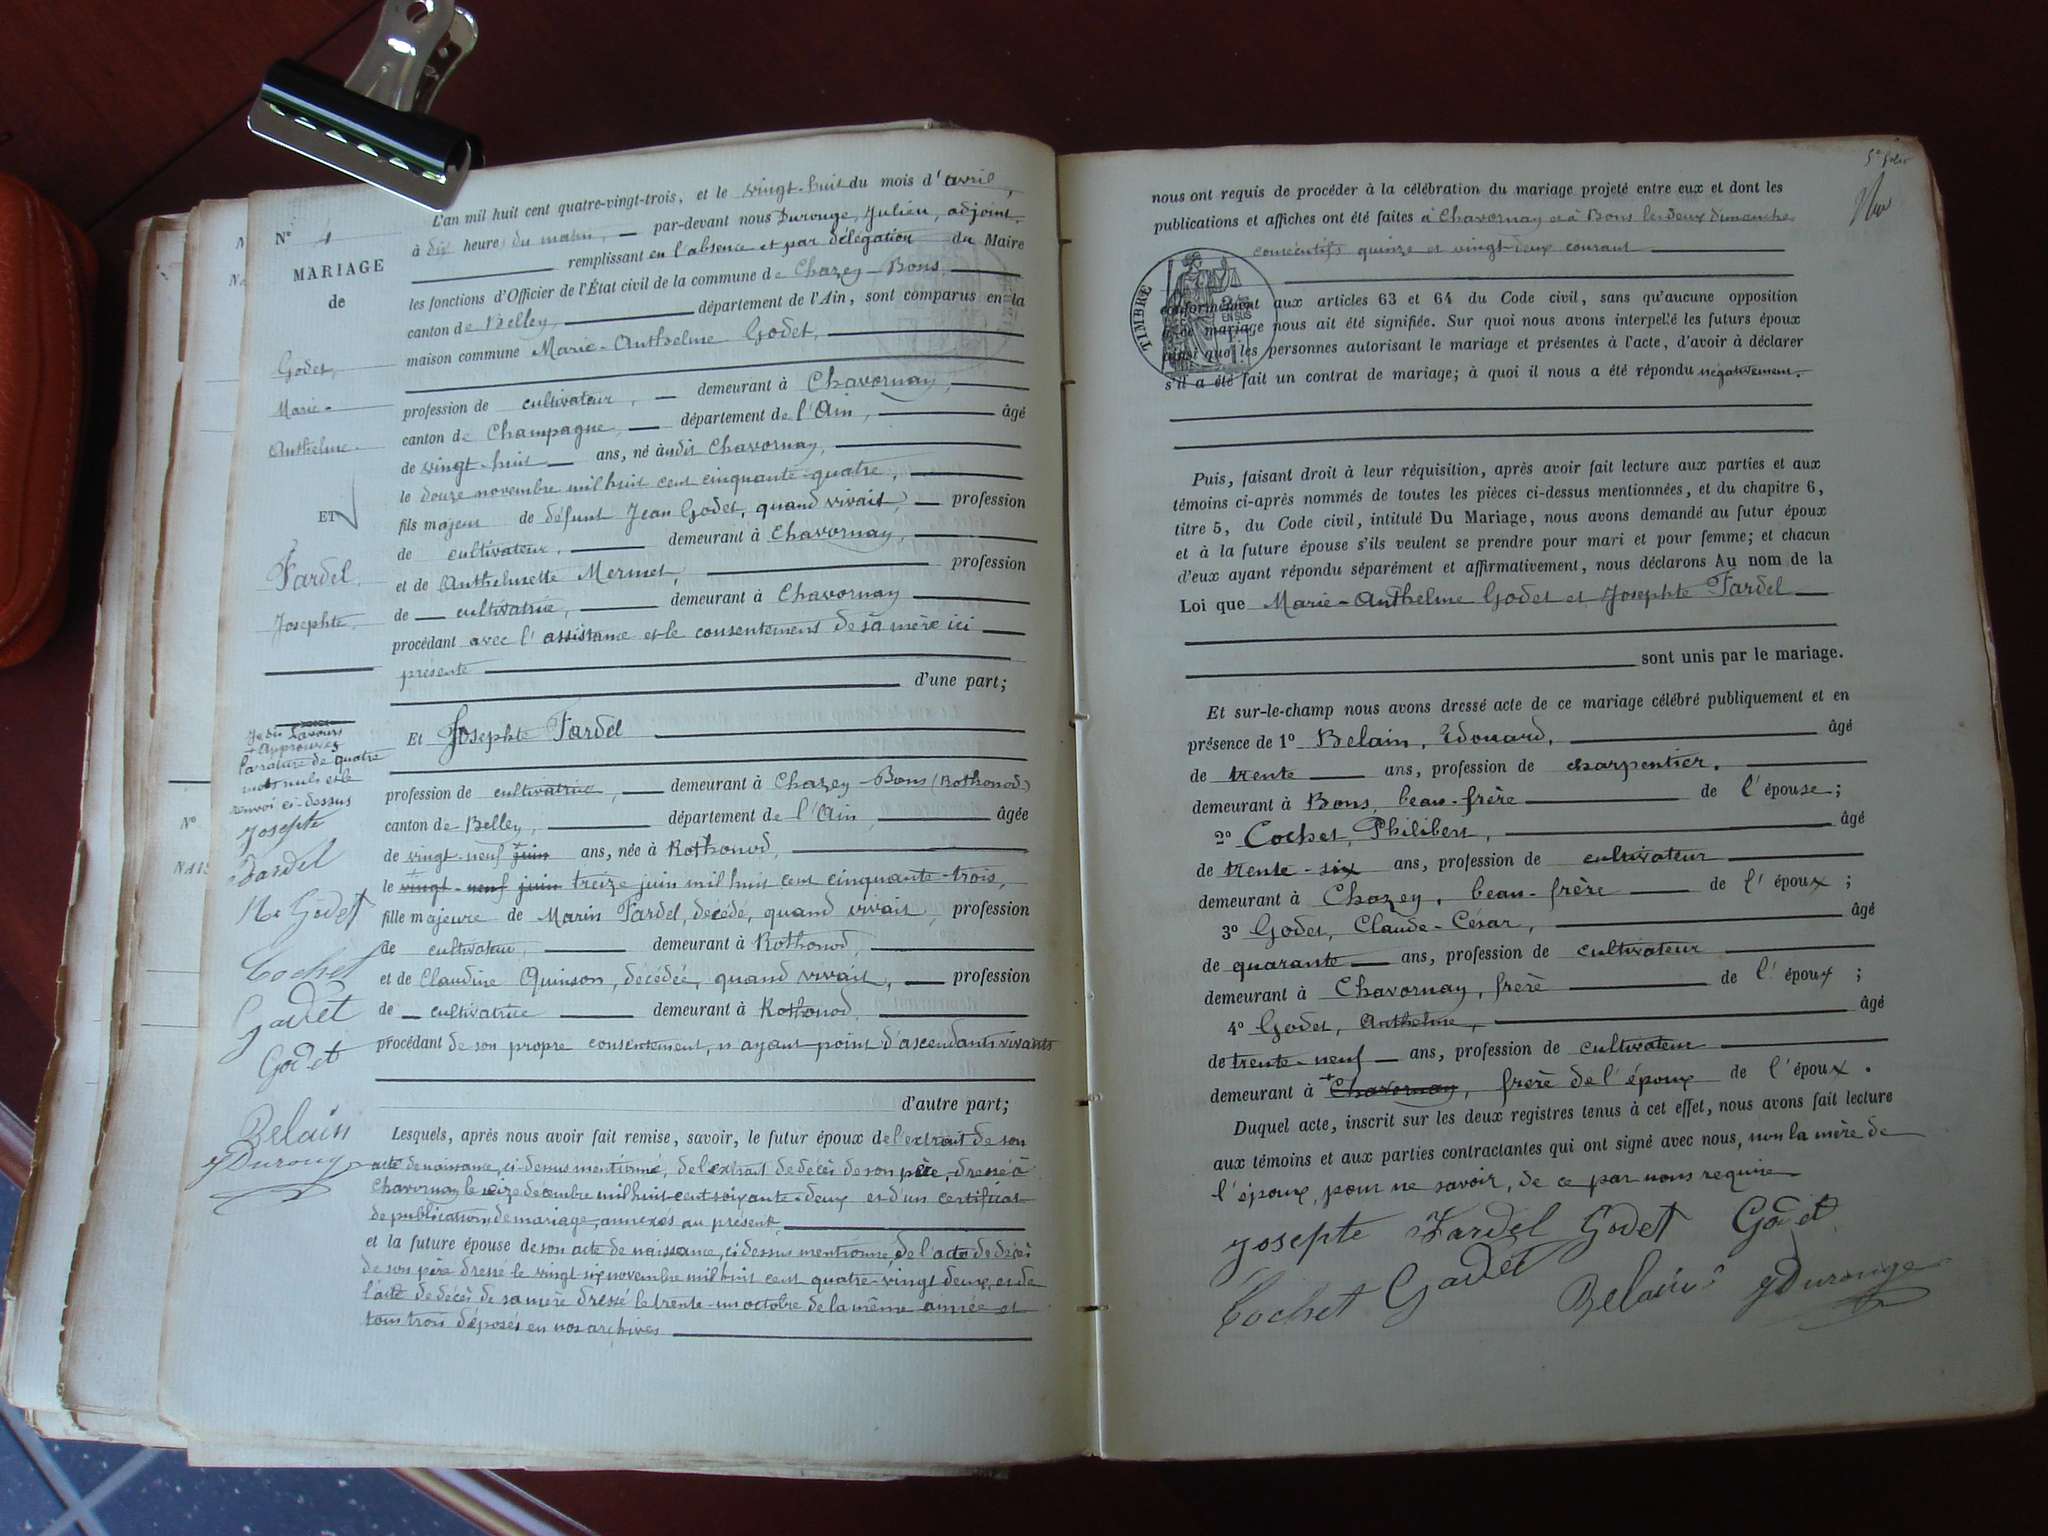 N° 4
MARIAGE
de
Godet,
Marie-
Anthelme
ET
Fardel
Josephte
L'an mil huit cent quatre-vingt-trois, et le vingt-huit du mois d'avril,
à dix heures du matin, par-devant nous Durouge, Julien, adjoint
remplissant en l'absence et par délégation du Maire
les fonctions d'Officier de l'État civil de la commune de Chazey-Bons,
canton de Belley, département de l'Ain, sont comparus en la
maison commune Marie-Anthelme Godet,
profession de cultivateur, demeurant à Chavornay,
canton de Champagne, département de l'Ain, âgé
de vingt-huit ans, né audit Chavornay,
le douze novembre mil huit cent cinquante-quatre,
fils majeur de défunt Jean Godet, quand vivait, profession
de cultivateur, demeurant à Chavornay,
et de Anthelmette Mermet, profession
de cultivatrice, demeurant à Chavornay
procédant avec l'assistance et le consentement de sa mère ici
présente
d'une part;
Et Josephte Fardel
profession de cultivatrice, demeurant à Chazey-Bons (Rothonod)
canton de Belley, département de l'Ain, âgée
de vingt-neuf juin ans, née à Rothonod,
le vingt-neuf juin treize juin mil huit cent cinquante-trois,
fille majeure de Marin Fardel, décédé, quand vivait, profession
de cultivateur, demeurant à Rothonod,
et de Claudine Quinson, décédée, quand vivait, profession
de cultivatrice demeurant à Rothonod,
procédant de son propre consentement, n'ayant point d'ascendants vivants
d'autre part;
Lesquels, après nous avoir fait remise, savoir, le futur époux de l'extrait de son
acte de naissance, ci-dessus mentionné, de l'extrait de décès de son père, dressé à
Chavornay le seize décembre mil huit cent soixante-deux et d'un certificat
de publication de mariage, annexés au présent,
et la future épouse de son acte de naissance, ci dessus mentionné, de l'acte de décès
de son père dressé le vingt six novembre mil huit cent quatre-vingt deux, et de
l'acte de décès de sa mère dressé le trente-un octobre de la même année et
tous trois déposés en nos archives
Approuvez
la rature de quatre
mots nuls et le
renvoi ci-dessus
Josephte
Fardel
Godet
Cochet
Godet
Godet
Belain
J Durouge
5e folio
nous ont requis de procéder à la célébration du mariage projeté entre eux et dont les
publications et affiches ont été faites à Chavornay et à Bons les deux dimanches
consécutifs quinze et vingt-deux courant
TIMBRE
conformément aux articles 63 et 64 du Code civil, sans qu'aucune opposition
à ce mariage nous ait été signifiée. Sur quoi nous avons interpellé les futurs époux
ainsi que les personnes autorisant le mariage et présentes à l'acte, d'avoir à déclarer
s'il a été fait un contrat de mariage; à quoi il nous a été répondu négativement.
Puis, faisant droit à leur réquisition, après avoir fait lecture aux parties et aux
témoins ci-après nommés de toutes les pièces ci-dessus mentionnées, et du chapitre 6,
titre 5, du Code civil, intitulé Du Mariage, nous avons demandé au futur époux
et à la future épouse s'ils veulent se prendre pour mari et pour femme; et chacun
d'eux ayant répondu séparément et affirmativement, nous déclarons Au nom de la
Loi que Marie-Anthelme Godet et Josephte Fardel
sont unis par le mariage.
Et sur-le-champ nous avons dressé acte de ce mariage célébré publiquement et en
présence de 1° Belain, Edouard, âgé
de trente ans, profession de charpentier,
demeurant à Bons, beau-frère de l'épouse;
2° Cochet, Philibert, âgé
de trente-six ans, profession de cultivateur
demeurant à Chazey, beau-frère de l'époux;
3° Godet, Claude-César, âgé
de quarante ans, profession de cultivateur
demeurant à Chavornay, frère de l'époux;
4° Godet, Anthelme, âgé
de trente-neuf ans, profession de cultivateur
demeurant à Chavornay, frère de l'époux de l'époux.
Duquel acte, inscrit sur les deux registres tenus à cet effet, nous avons fait lecture
aux témoins et aux parties contractantes qui ont signé avec nous, non la mère de
l'époux, pour ne savoir, de ce par nous requise
Josepte Fardel Godet Godet
Cochet Godet Belain J Durouge